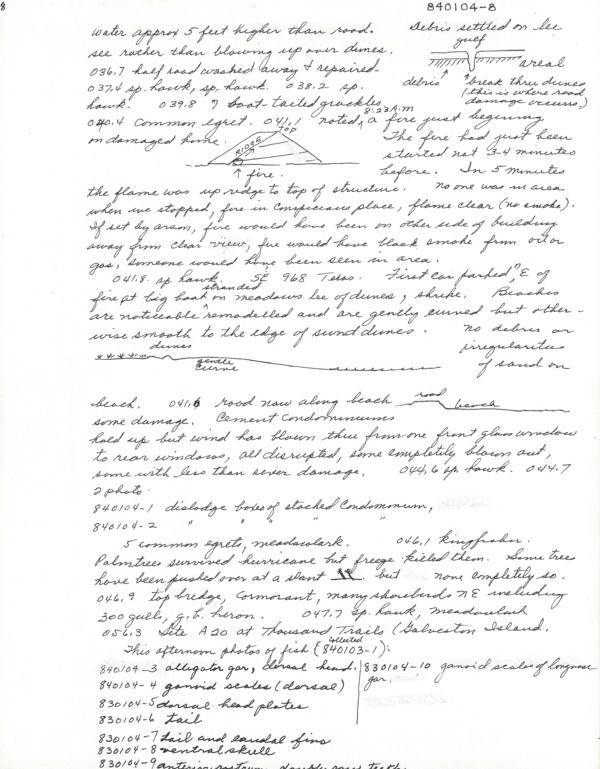 8
840104-8
water approx 5 feet higher than road. Debris settled on lee
gulf
see rather than blowing up over dunes. areal
036.7 half road washed away & repaired. debris ↑ break thru dunes
037.4 sp. hawk, sp. hawk. 038.2 sp. (this is where road
hawk. 039.8 7 boat-tailed grackles. damage occurs.)
8:23 A.M
040.4 common egret. 041.1 noted a fire just beginning
on damaged home. TOP The fire had just been
RIDGE
started not 3-4 minutes
↑ fire. before. In 5 minutes
the flame was up ridge to top of structure. no one was in area
when we stopped, fire in conspicuous place, flame clear (no smoke).
If set by arson, fire would have been on other side of building
away from clear view, fire would have black smoke from oil or
gas, someone would have been seen in area.
041.8. sp. hawk. SE 968 Texas. First car parked "E of
stranded
fire at big boat on meadows lee of dunes, shrike. Beaches
are noticeable remodelled and are gently curved but other-
wise smooth to the edge of sand dunes. no debris or
dunes irregularities
gentle curve of sand on
beach. 041.6 road now along beach road beach
some damage. Cement Condominiums
hold up but wind has blown thru from one front glass window
to rear windows, all disrupted, some completely blown out,
some with less than sever damage. 044.6 sp. hawk. 044.7
2 photo.
840104-1 dislodge boxes of stacked Condominum,
840104-2 " " " " "
5 common egrets, meadowlark. 046.1 kingfisher.
Palmtrees survived hurricane but freeze killed them. Some trees
have been pushed over at a slant but none completely so.
046.9 top bridge, cormorant, many shorebirds NE including
300 gulls, g. b. heron. 047.7 sp. hawk, meadowlark
056.3 Site A20 at Thousand Trails (Galveston Island.
collected
This afternoon photos of fish (840103-1):
840104-3 alligator gar, dorsal head. 830104-10 ganoid scales of longnose
840104-4 ganoid scales (dorsal) gar.
830104-5 dorsal head plates
830104-6 tail
830104-7 tail and caudal fins
830104-8 ventral skull
830104-9 anterior rostrum, double row teeth